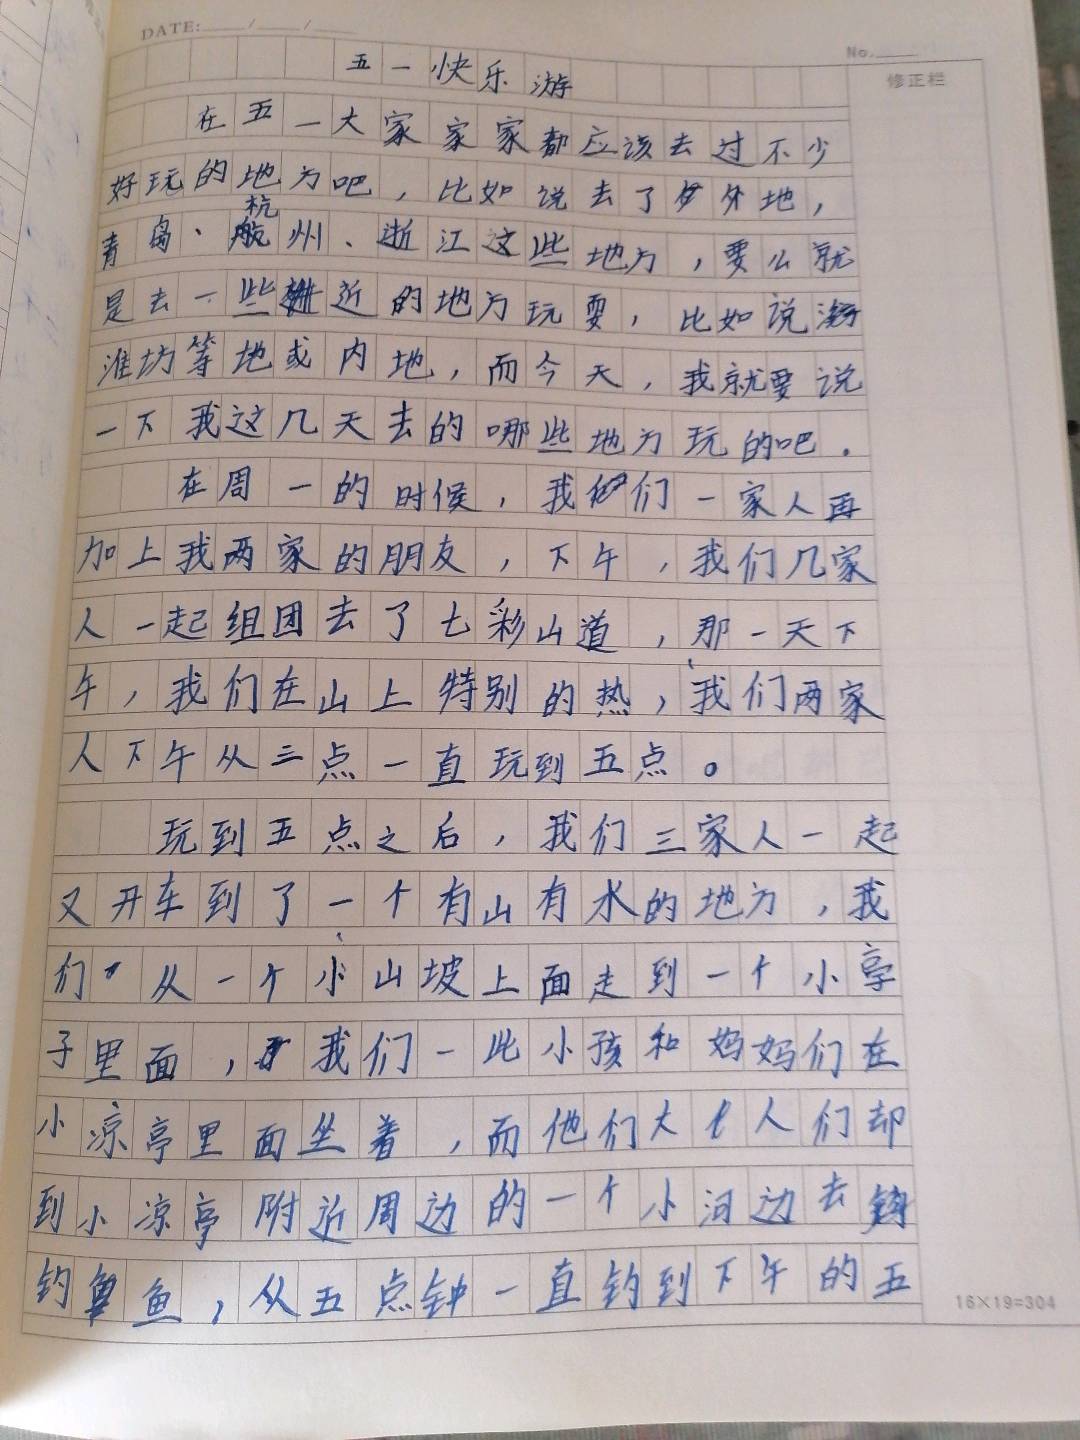 DATE: / /
No.
修正栏
五一快乐游
在五一大家家家都应该去过不少
好玩的地方吧，比如说去了外地，
青岛、杭州、浙江这些地方，要么就
是去一些附近的地方玩耍，比如说
潍坊等地或内地，而今天，我就要说
一下我这几天去的哪些地方玩的吧.
在周一的时候，我们一家人再
加上我两家的朋友，下午，我们几家
人一起组团去了七彩山道，那一天下
午，我们在山上特别的热，我们两家
人下午从三点一直玩到五点。
玩到五点之后，我们三家人一起
又开车到了一个有山有水的地方，我
们从一个小山坡上面走到一个小亭
子里面，我们一此小孩和妈妈们在
小凉亭里面坐着，而他们大人们却
到小凉亭附近周边的一个小河边去
钓鱼，从五点钟一直钓到下午的五
16×19=304